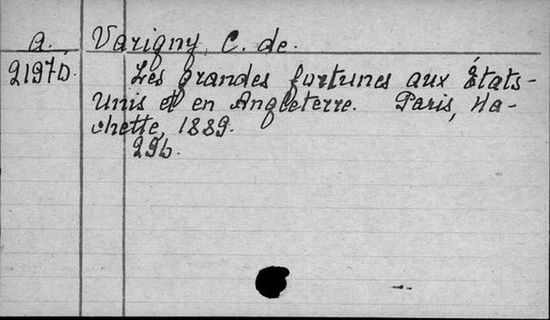 a. Varigny, C. de.
21970. Les grandes fortunes aux États-
Unis et en Angleterre. Paris, Ha-
chette, 1889.
296.